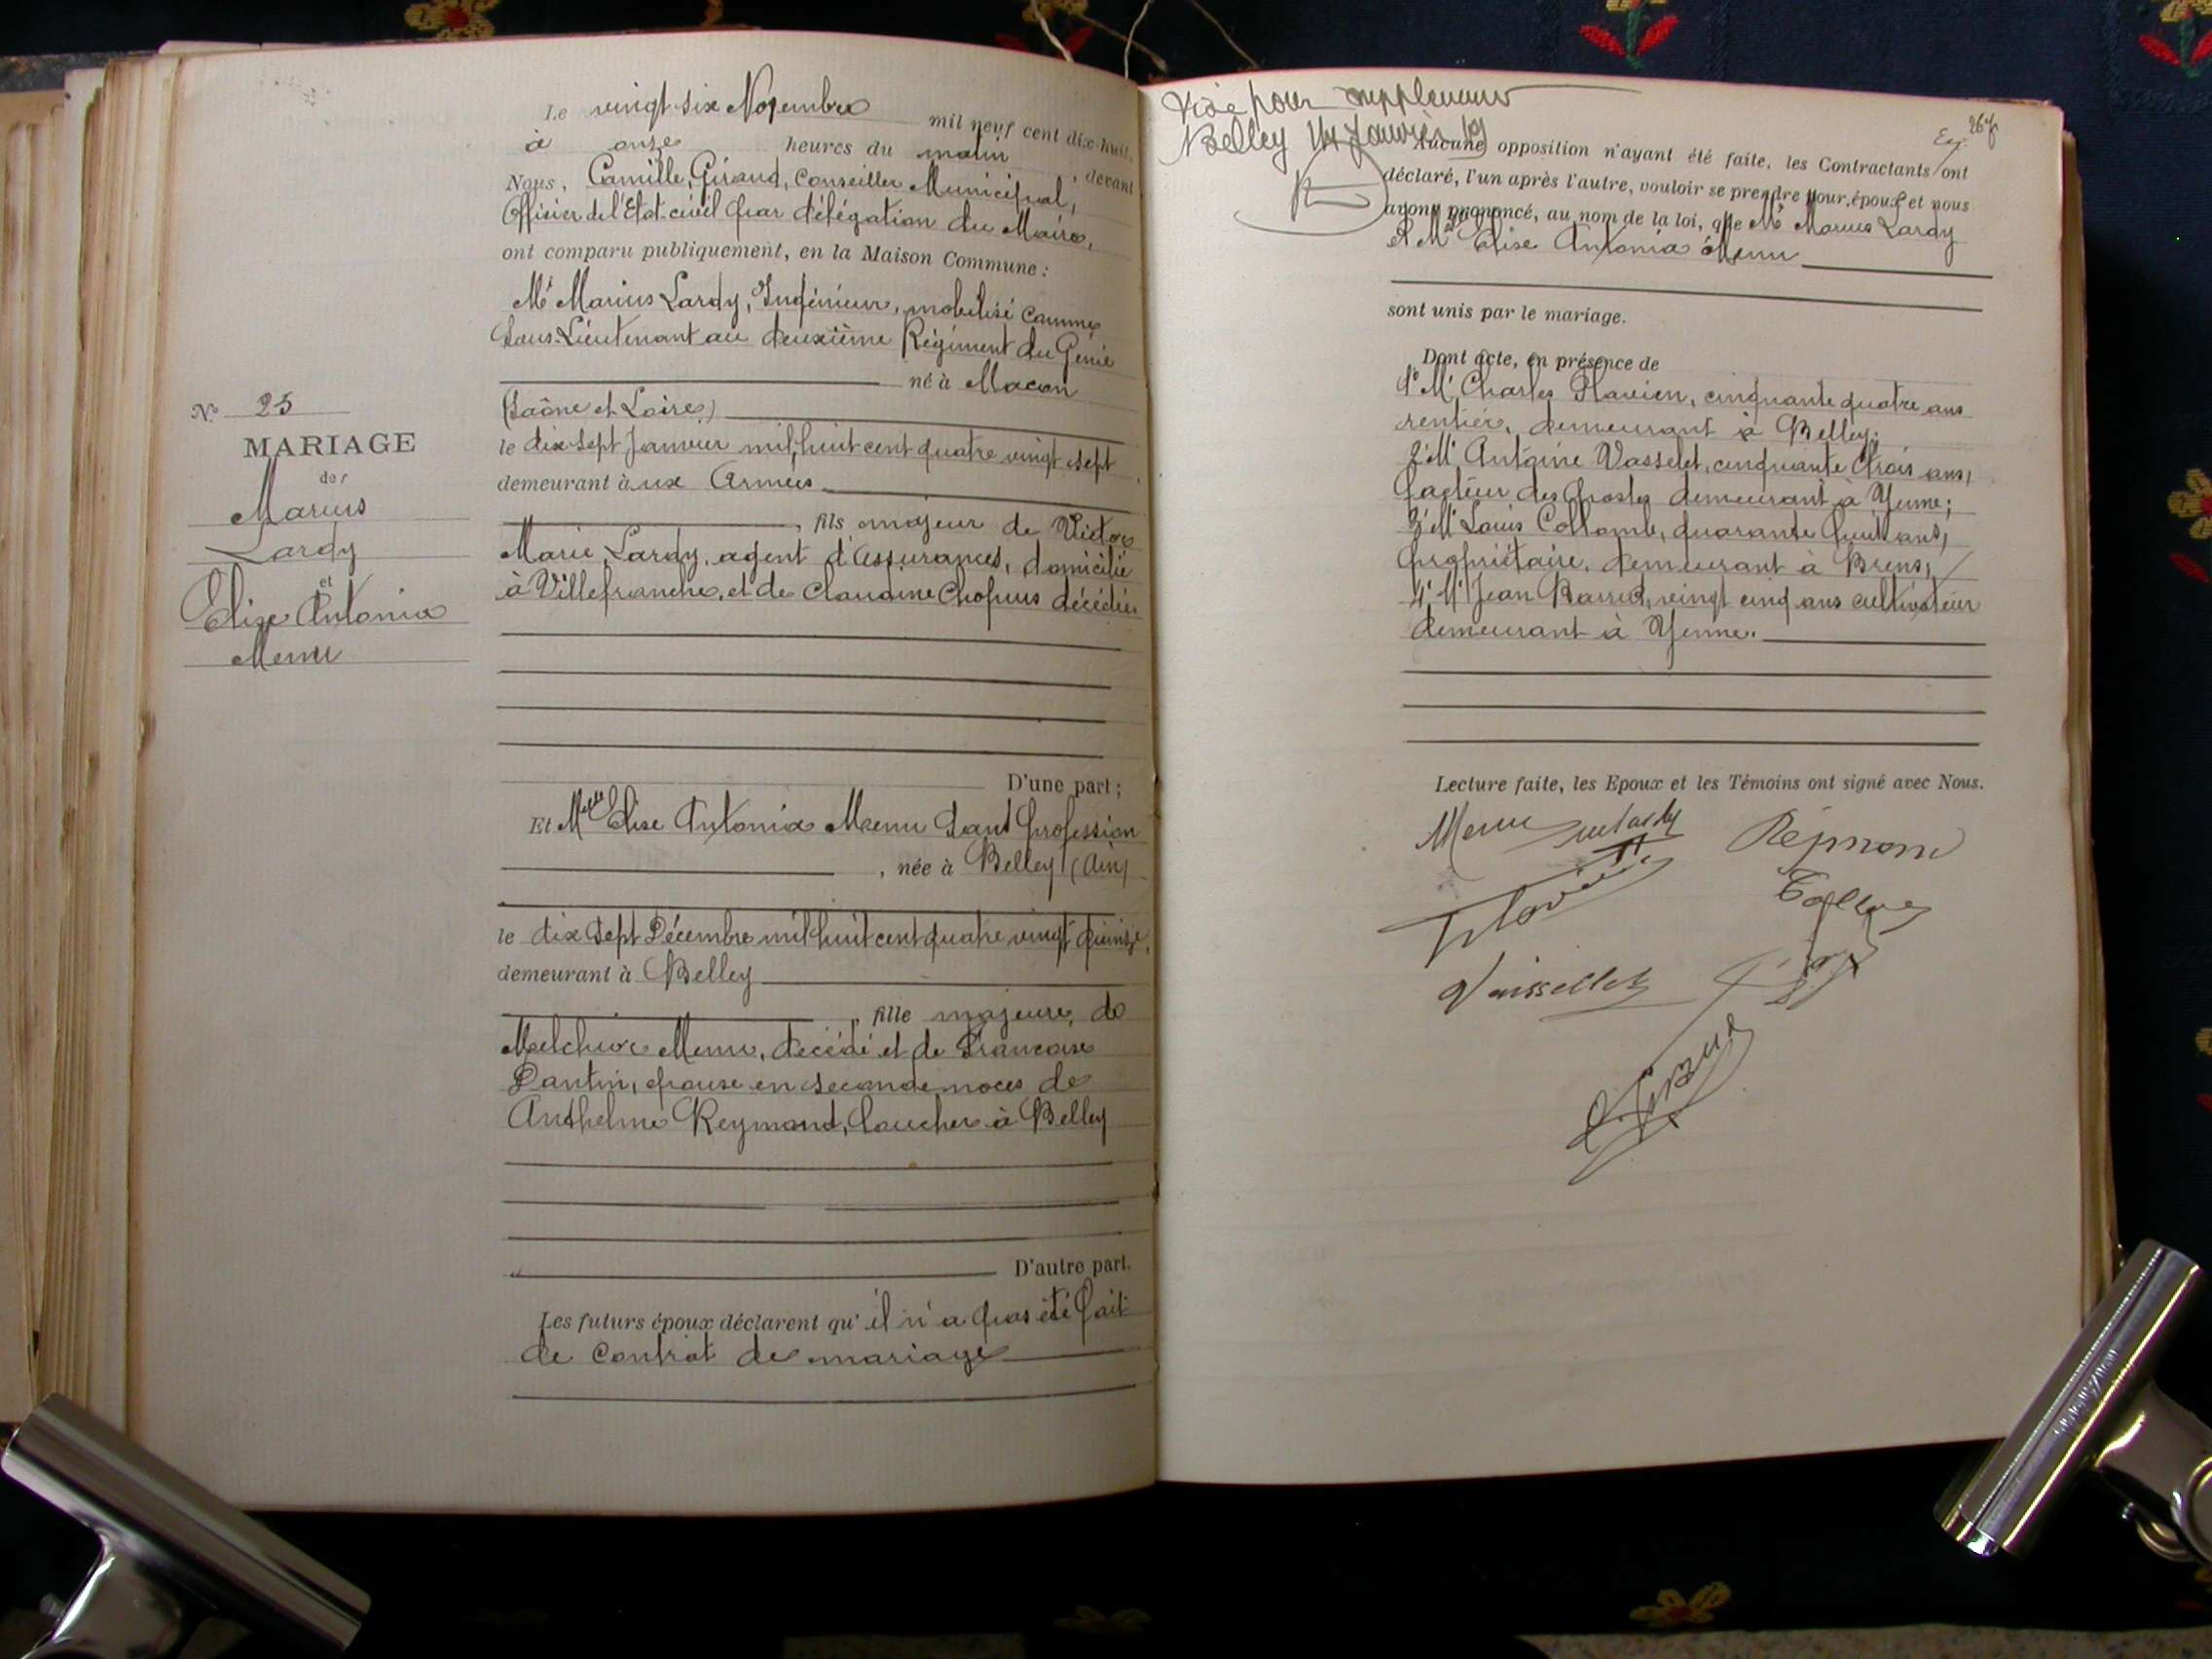 N° 25
MARIAGE
de
Marius
Lardy
et
Elise Antonia
Menu
Le vingt six Novembre mil neuf cent dix-huit,
à onze heures du matin, devant
Nous, Camille Giraud, Conseiller Municipal,
Officier de l'Etat-civil par délégation du Maire,
ont comparu publiquement, en la Maison Commune :
Mr Marius Lardy, Ingénieur, mobilisé comme
Sous-Lieutenant au deuxième Régiment du Génie
né à Macon
(Saône et Loire)
le dix sept Janvier mil huit cent quatre vingt sept
demeurant à ux Armées
, fils majeur de Victor
Marie Lardy, agent d'Assurances, domicilié
à Villefranche, et de Claudine décédée
D'une part ;
Et Melle Elise Antonia Menu Sans profession
, née à Belley (Ain)
le dix sept Décembre mil huit cent quatre vingt quinze,
demeurant à Belley
, fille majeure de
Melchior Menu, décédé et de Francoise
Dantin, épouse en secondes noces de
Anthelme Reymond, boucher à Belley
D'autre part.
Les futurs époux déclarent qu'il n'a pas été fait
de contrat de mariage
Visé pour
Belley 14 Janvier 19
Aucune opposition n'ayant été faite, les Contractants ont
déclaré, l'un après l'autre, vouloir se prendre pour époux et nous
avons prononcé, au nom de la loi, que Mr Marius Lardy
et Melle Elise Antonia Menu
sont unis par le mariage.
Dont acte, en présence de
1° Mr Charles Flavien, cinquante quatre ans
rentier, demeurant à Belley;
2° Mr Antoine Vasselet, cinquante trois ans,
facteur des Postes demeurant à Yenne;
3° Mr Louis Collomb, quarante huit ans,
propriétaire, demeurant à Brens,
4° Mr Jean vingt cinq ans cultivateur
demeurant à Yenne.
Lecture faite, les Epoux et les Témoins ont signé avec Nous.
Menu